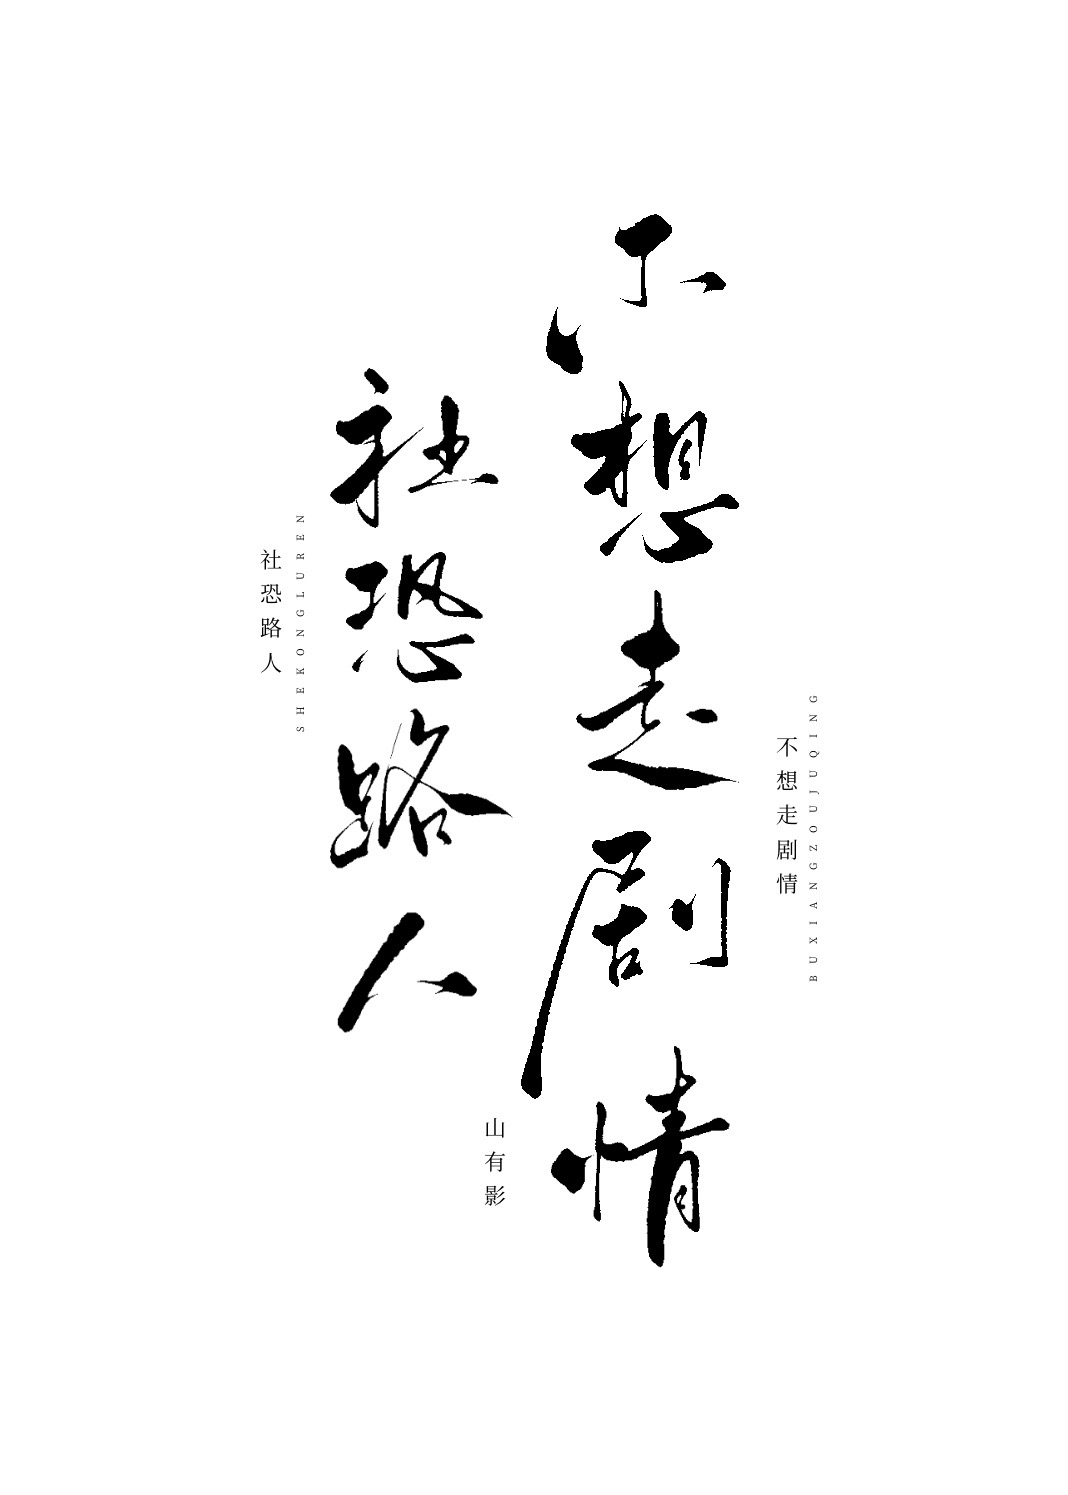 不想走剧情
社恐路人
不想走剧情
BUXIANGZOUJUQING
社恐路人
SHEKONGLUREN
山有影